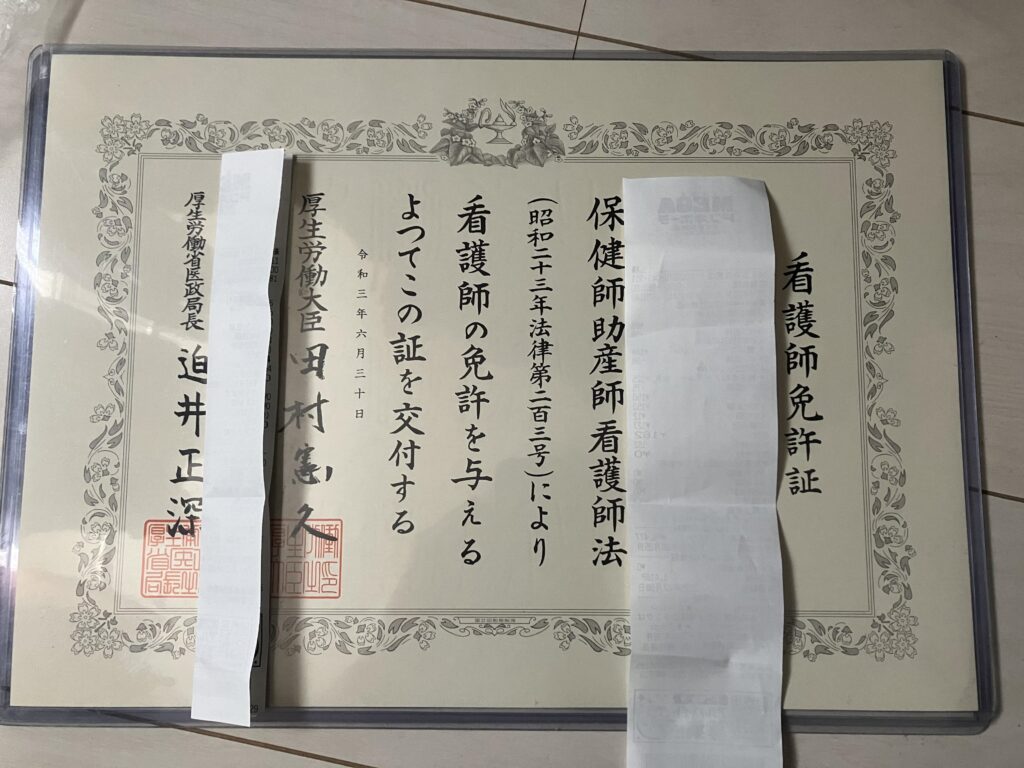 看護師免許証
保健師助産師看護師法
(昭和二十三年法律第二百三号)により
看護師の免許を与える
よつてこの証を交付する
令和三年六月三十日
厚生労働大臣 田村憲久
厚生労働省医政局長 迫井正深